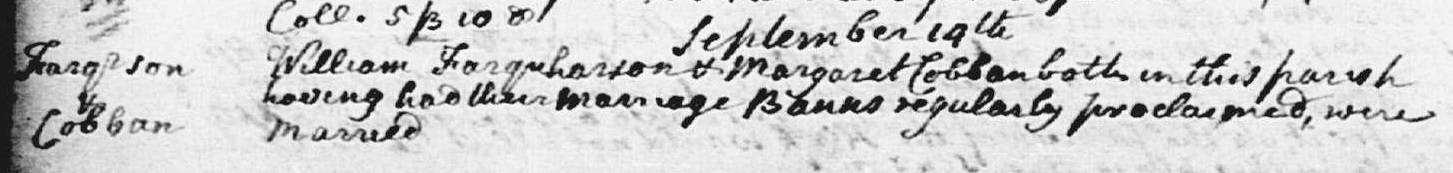 Coll. 5 ß 10 d
September 19th
Farqrson William Farquharson & Margaret Cobban both in this parish
& having had their marriage Banns regularly proclaimed, were
Cobban Married